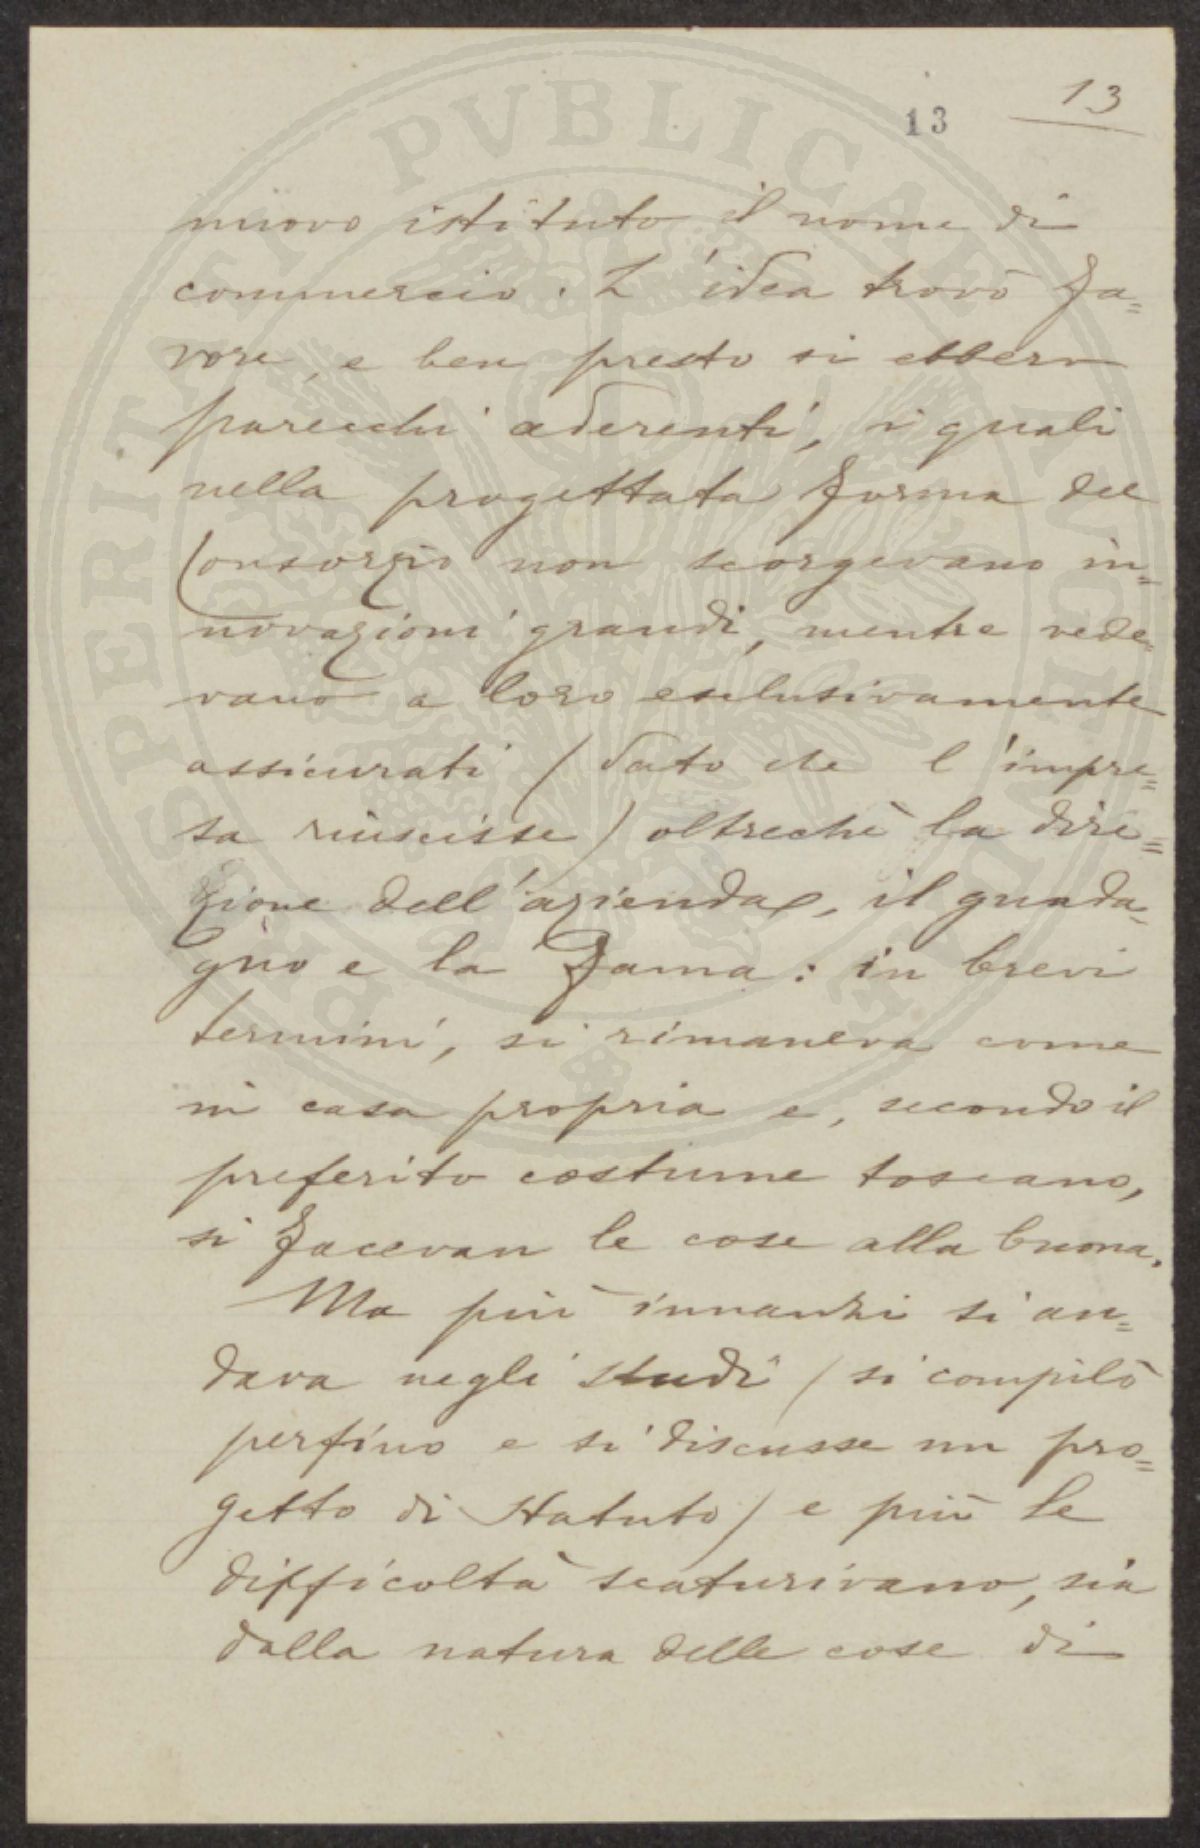 13
13
nuovo istituto il nome di
commercio. L'idea trovò fa=
vore, e ben presto si ebbero
parecchi aderenti, i quali
nella progettata forma del
Consorzio non scorgevano in=
novazioni grandi, mentre vede=
vano a loro esclusivamente
assicurati (dato che l'impre=
sa riuscisse) oltrechè la dire=
zione dell'azienda, il guada=
gno e la fama: in brevi
termini, si rimaneva come
in casa propria e, secondo il
preferito costume toscano,
si facevan le cose alla buona.
Ma più innanzi si an=
dava negli studî (si compilò
perfino e si discusse un pro=
getto di Statuto) e più le
difficoltà scaturivano, sia
dalla natura delle cose di
PVBLICAE AVCTVM PROSPERITATI